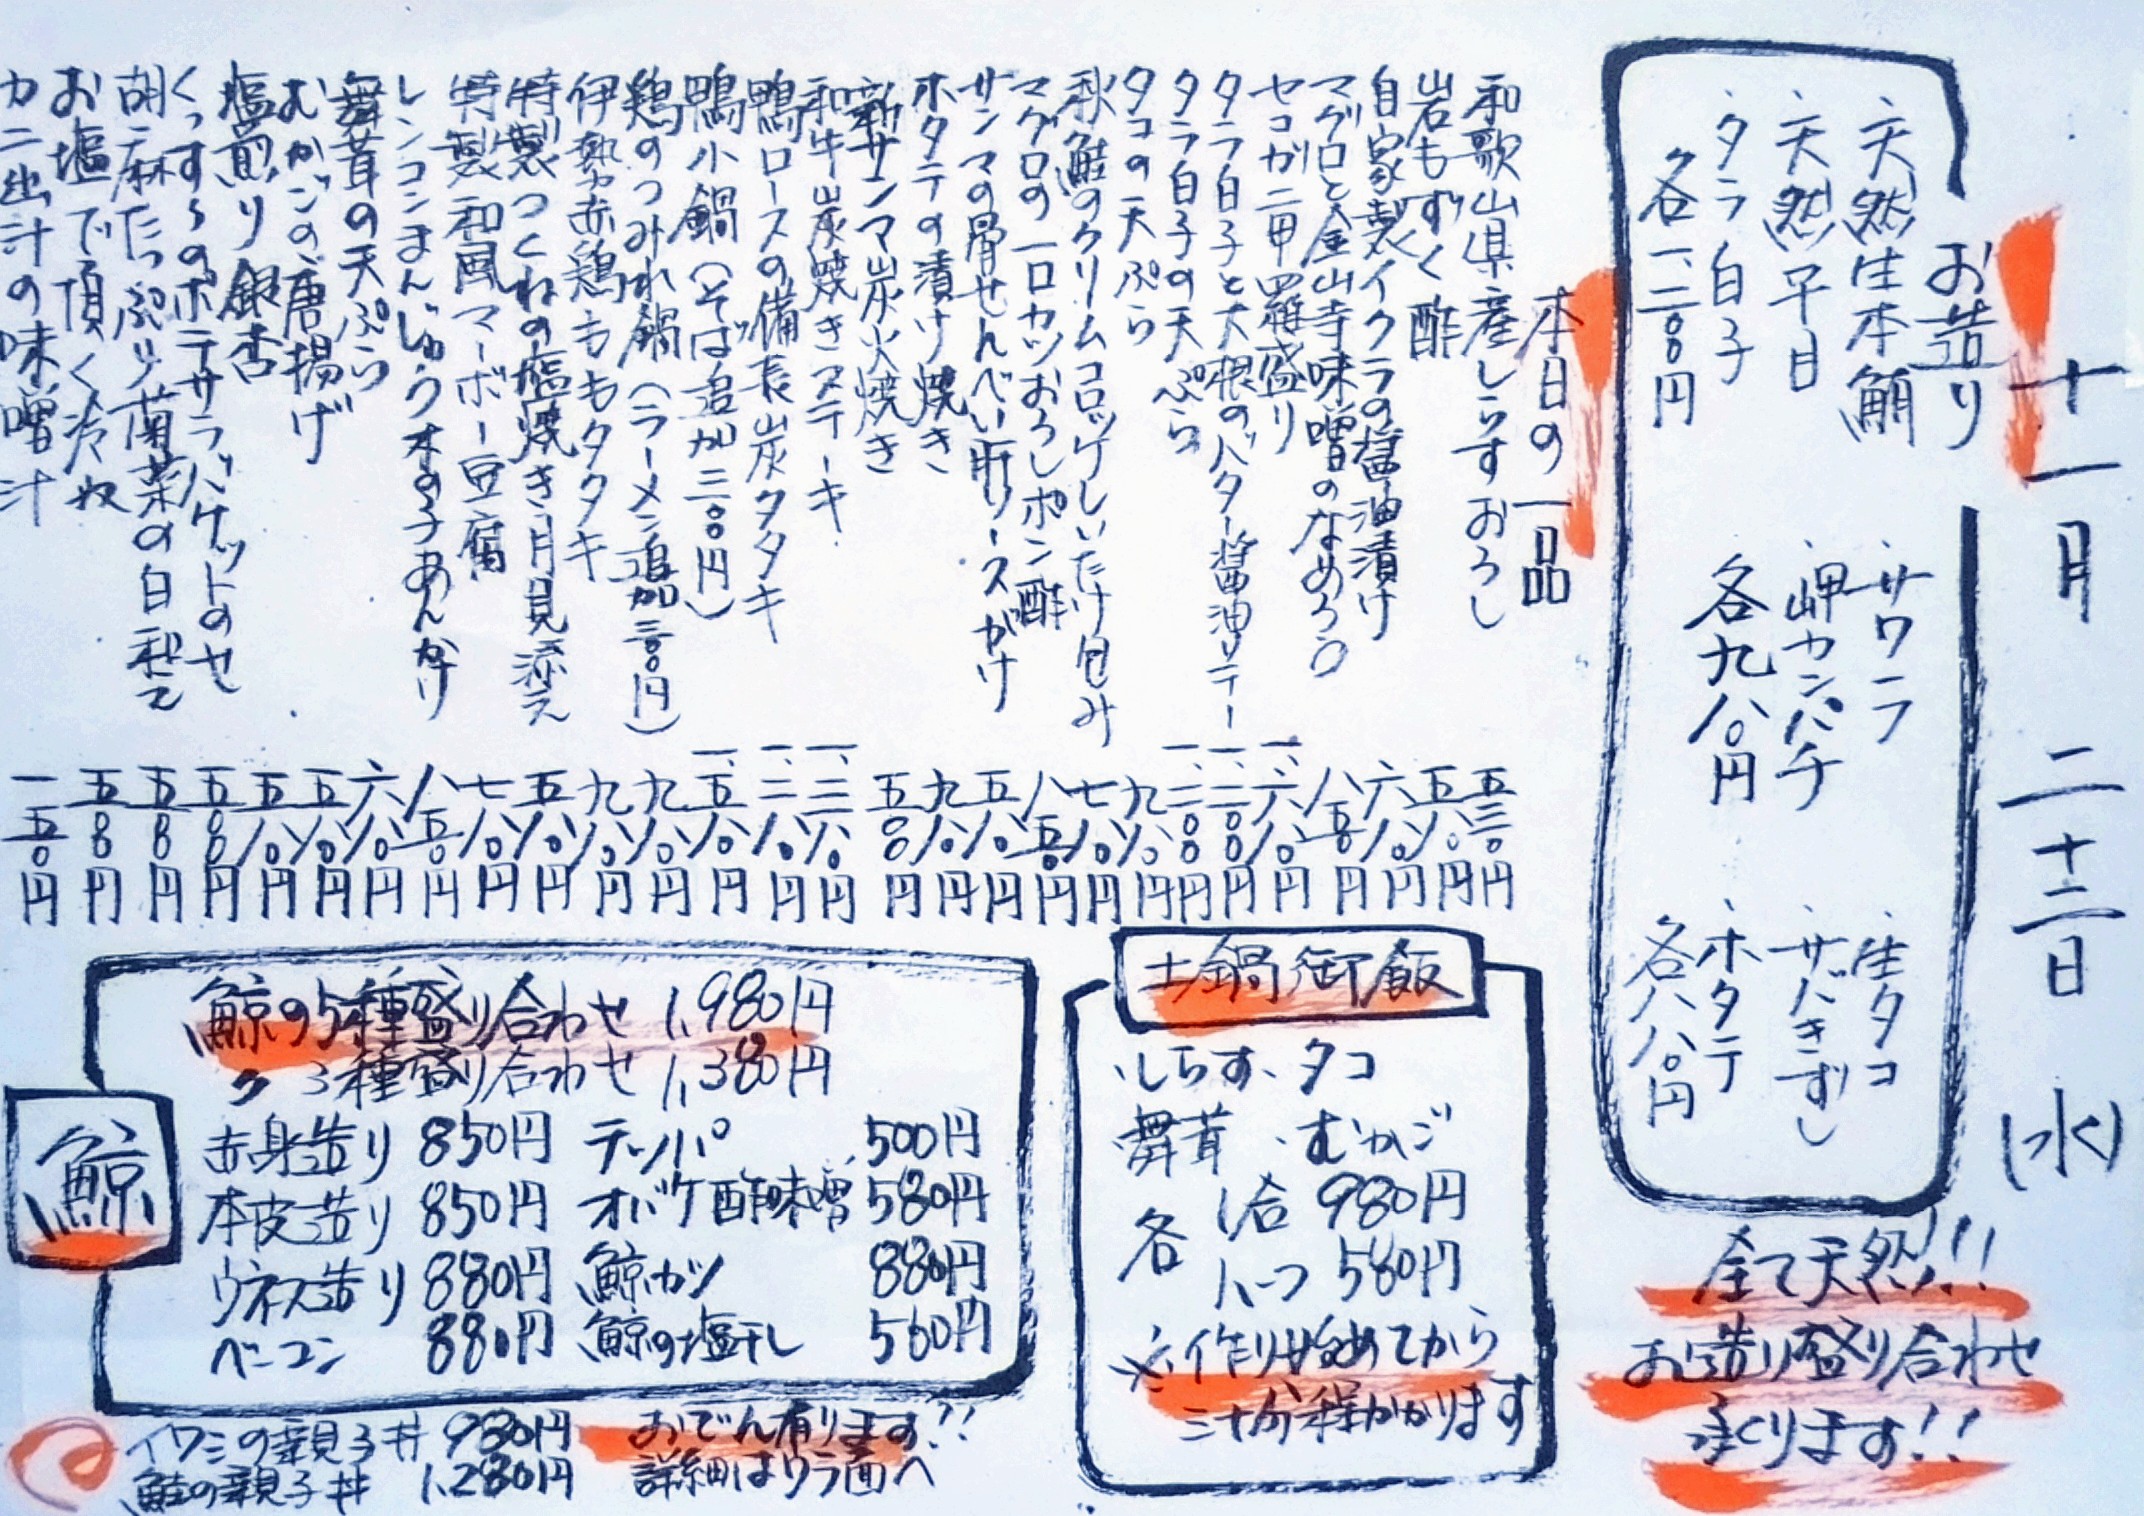 十一月 二十三日 (水)
お造り
・天然生本鮪
・天然平目
・タラ白子
各一、二〇〇円
・サワラ
・岬カンパチ
各九八〇円
・生タコ
・サバきずし
・ホタテ
各八八〇円
全て天然!!!
お造り盛り合わせ
承ります!!
本日の一品
和歌山県産しらすおろし 五三〇円
岩もずく酢 五八〇円
自家製イクラの醤油漬け 六八〇円
マグロと金山寺味噌のなめろう 八五〇円
セコガニ甲羅盛り 一、六八〇円
タラ白子と大根のバター醤油ソテー 一、二〇〇円
タラ白子の天ぷら 一、二〇〇円
タコの天ぷら 九八〇円
秋鮭のクリームコロッケしいたけ包み 七八〇円
マグロの一口カツおろしポン酢 八五〇円
サンマの骨せんべい肝ソースがけ 五八〇円
ホタテの漬け焼き 九八〇円
新サンマ炭火焼き 五八〇円
和牛炭焼きステーキ 一、三八〇円
鴨ロースの備長炭タタキ 一、二八〇円
鴨小鍋(そば追加三〇〇円) 一、五八〇円
鶏のつみれ鍋(ラーメン追加三〇〇円) 九八〇円
伊勢赤鶏ももタタキ 九八〇円
特製つくねの塩焼き月見添え 五八〇円
特製和風マーボー豆腐 七八〇円
レンコンまんじゅう木の子あんかけ 八五〇円
舞茸の天ぷら 六八〇円
むかごの唐揚げ 五八〇円
塩煎り銀杏 五八〇円
くっすーのポテサラバケットのせ 五八〇円
胡麻たっぷり菊菜の白和え 五八〇円
お塩で頂く冷奴 五八〇円
カニ出汁の味噌汁 一五〇円
土鍋御飯
・しらす・タコ
舞茸・むかご
各 1合 980円
ハーフ 580円
※作り始めてから
三十分程かかります
鯨
鯨の5種盛り合わせ 1,980円
〃 3種盛り合わせ 1,380円
赤身造り 850円 テッパ 500円
本皮造り 850円 オバケ酢味噌 580円
ウネス造り 880円 鯨カツ 880円
ベーコン 880円 鯨の塩干し 560円
イワシの親子丼 980円
鮭の親子丼 1,280円
おでん有ります!!
詳細はウラ面へ